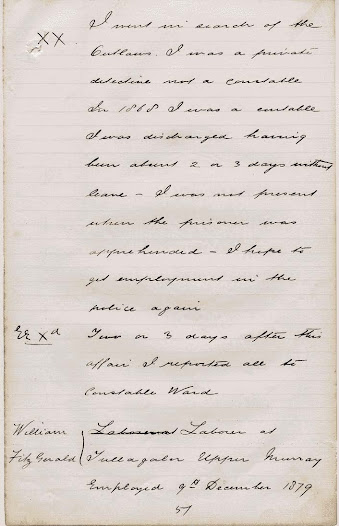 I went in search of the
XX
Outlaws. I was a private
detective not a constable
In 1868 I was a constable
I was discharged having
been absent 2 or 3 days without
leave – I was not present
when the prisoner was
apprehended – I hope to
get employment in the
police again
Re Xd
Two or 3 days after this
affair I reported all to
Constable Ward
William
Labourer at
FitzGerald
Upper Murray
Employed 9th December 1879
57